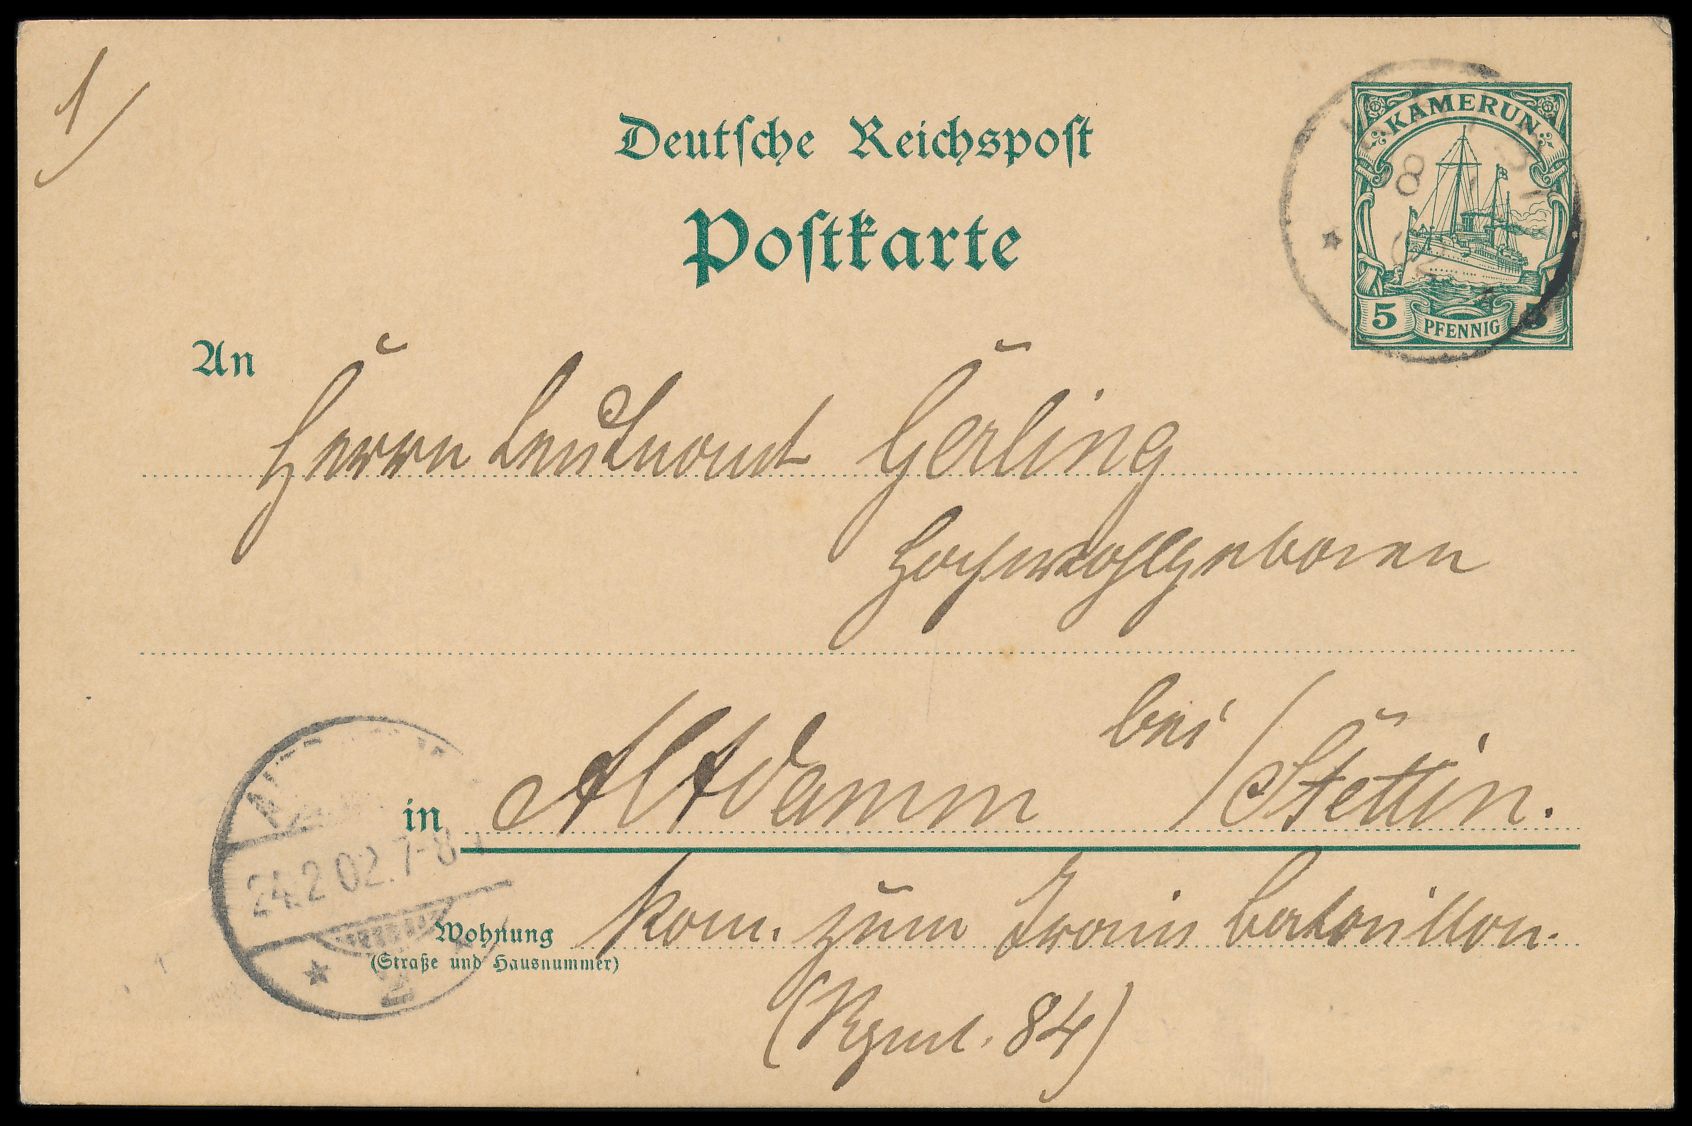 1)
Deutsche Reichspost
Postkarte
KAMERUN
8
1
02
5 PFENNIG 5
An
Herrn Leutnant Gerling
Hochwohlgeboren
in Altdamm bei / Stettin.
24.2.02.7-8
2
Wohnung Kom. zum Train Bataillon.
(Straße und Hausnummer)
(Rgmt. 84)